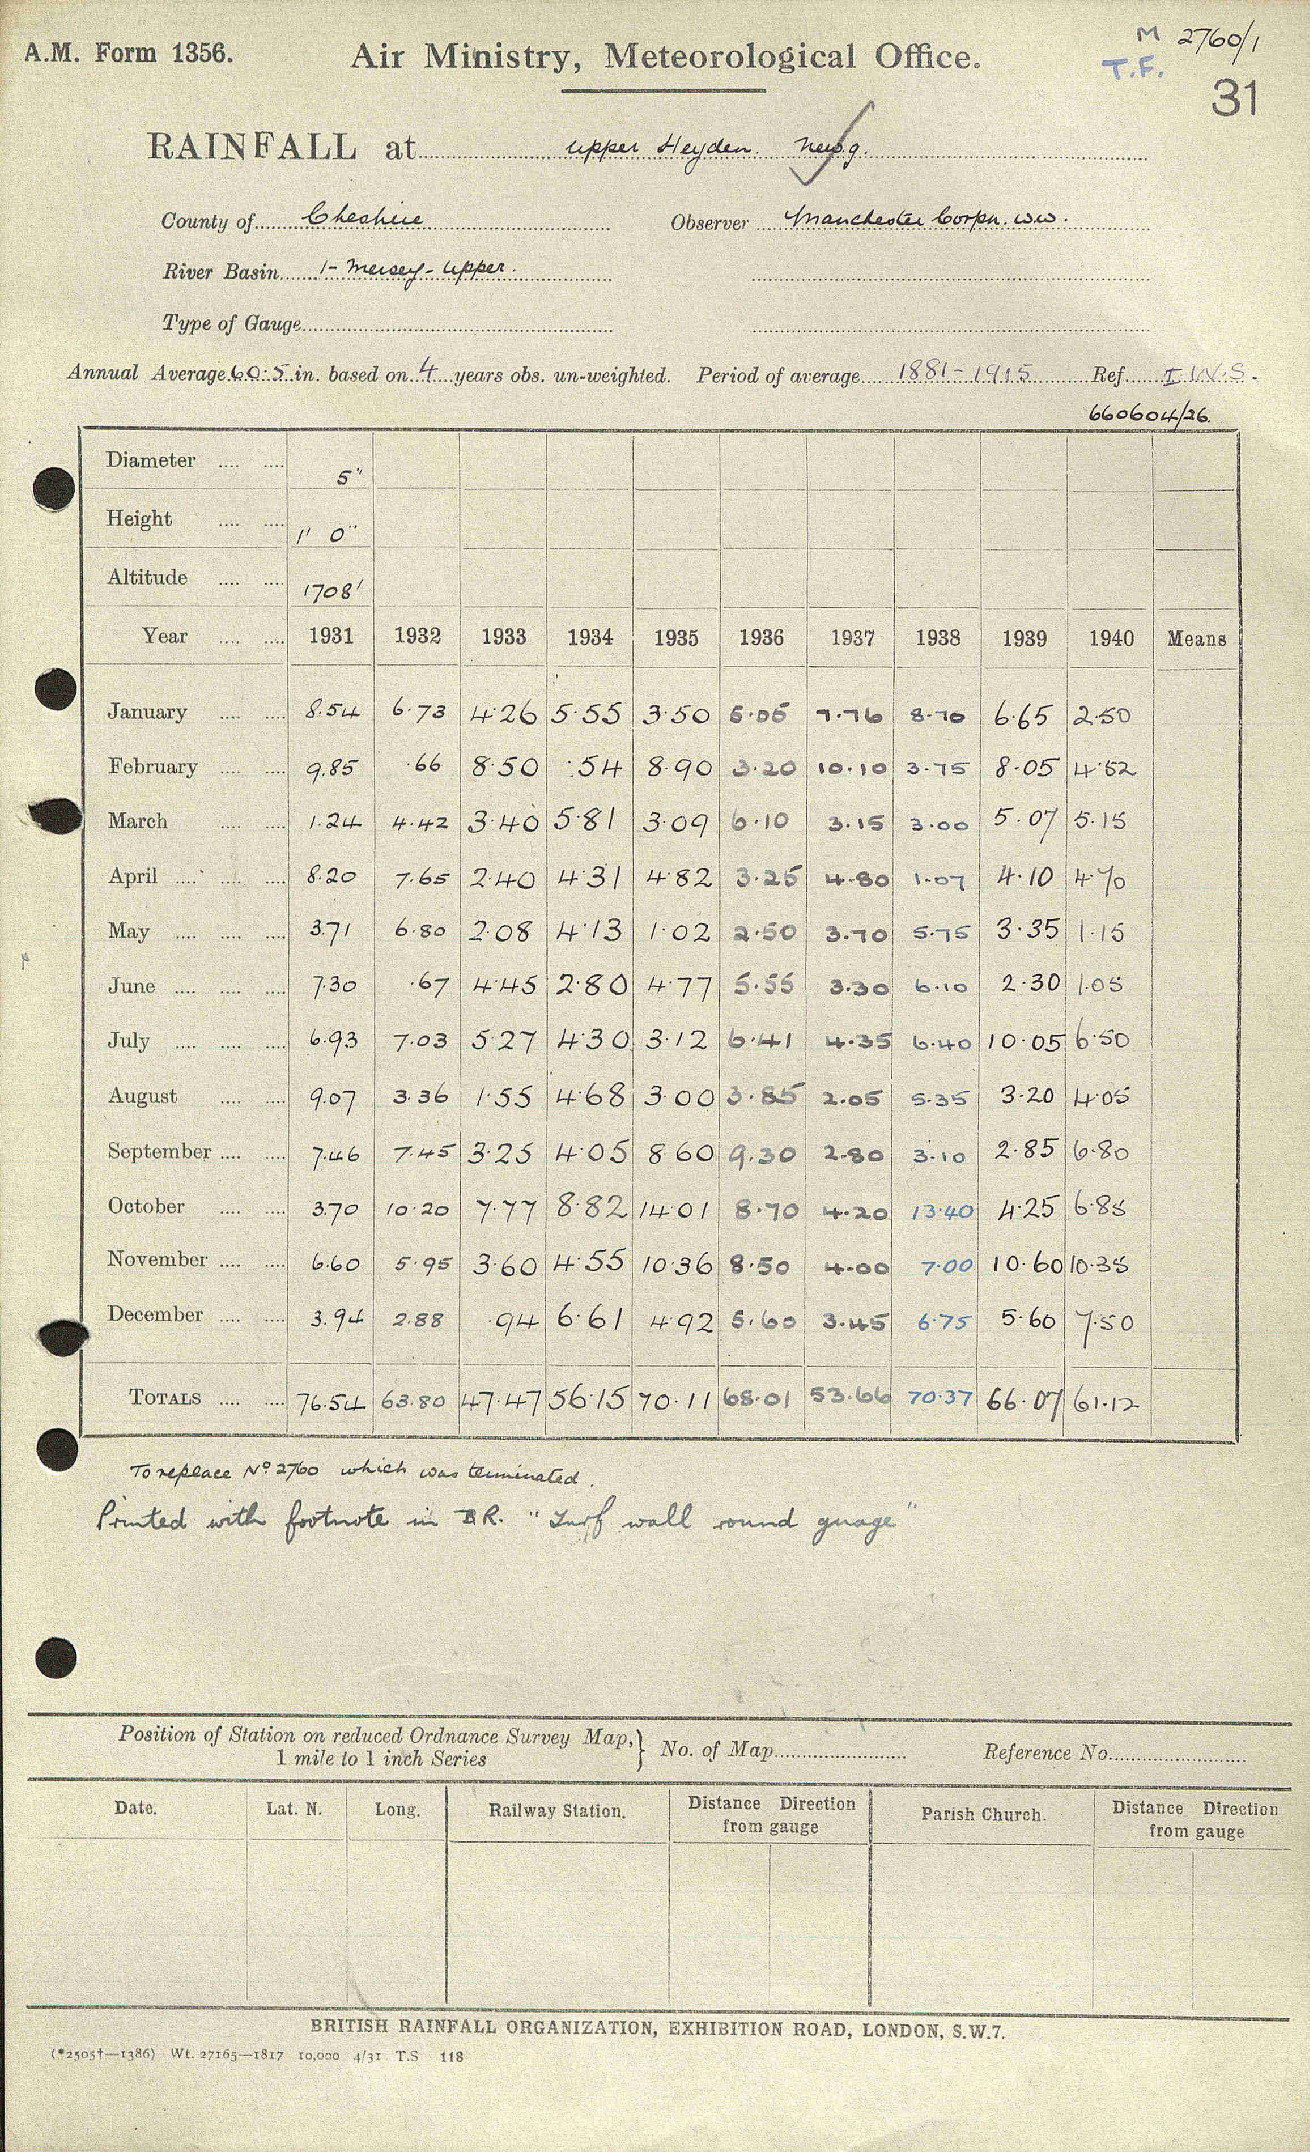 A.M. Form 1356.
Air Ministry, Meteorological Office.
M 2760/1
T.F.
31
RAINFALL at Upper Heyden
County of Cheshire Observer Manchester Corpn. W.W.
River Basin 1 - Mersey - Upper.
Type of Gauge
Annual Average 60.5 in. based on 4 years obs. un-weighted. Period of average 1881-1915 Ref. I.W.S.
660604/26.
Diameter 5"
Height 1' 0"
Altitude 1708'
Year 1931 1932 1933 1934 1935 1936 1937 1938 1939 1940 Means
January 8.54 6.73 4.26 5.55 3.50 5.05 7.76 8.70 6.65 2.50
February 9.85 .66 8.50 .54 8.90 3.20 10.10 3.75 8.05 4.52
March 1.24 4.42 3.40 5.81 3.09 6.10 3.15 3.00 5.07 5.15
April 8.20 7.65 2.40 4.31 4.82 3.25 4.80 1.07 4.10 4.70
May 3.71 6.80 2.08 4.13 1.02 2.50 3.70 5.75 3.35 1.15
June 7.30 .67 4.45 2.80 4.77 5.55 3.30 6.10 2.30 1.05
July 6.93 7.03 5.27 4.30 3.12 6.41 4.35 6.40 10.05 6.50
August 9.07 3.36 1.55 4.68 3.00 3.85 2.05 5.35 3.20 4.05
September 7.46 7.45 3.25 4.05 8.60 9.30 2.80 3.10 2.85 6.80
October 3.70 10.20 7.77 8.82 14.01 8.70 4.20 13.40 4.25 6.85
November 6.60 5.95 3.60 4.55 10.36 8.50 4.00 7.00 10.60 10.35
December 3.94 2.88 .94 6.61 4.92 5.60 3.45 6.75 5.60 7.50
TOTALS 76.54 63.80 47.47 56.15 70.11 68.01 53.66 70.37 66.07 61.12
To replace No 2760 which was terminated.
Printed with footnote in B.R. "Turf wall round guage"
Position of Station on reduced Ordnance Survey Map,} No. of Map Reference No.
1 mile to 1 inch Series
Date. Lat. N. Long. Railway Station. Distance Direction from gauge Parish Church. Distance Direction from gauge
BRITISH RAINFALL ORGANIZATION, EXHIBITION ROAD, LONDON, S.W.7.
(*2505†—1386) Wt. 27165—1817 10,000 4/31 T.S 118